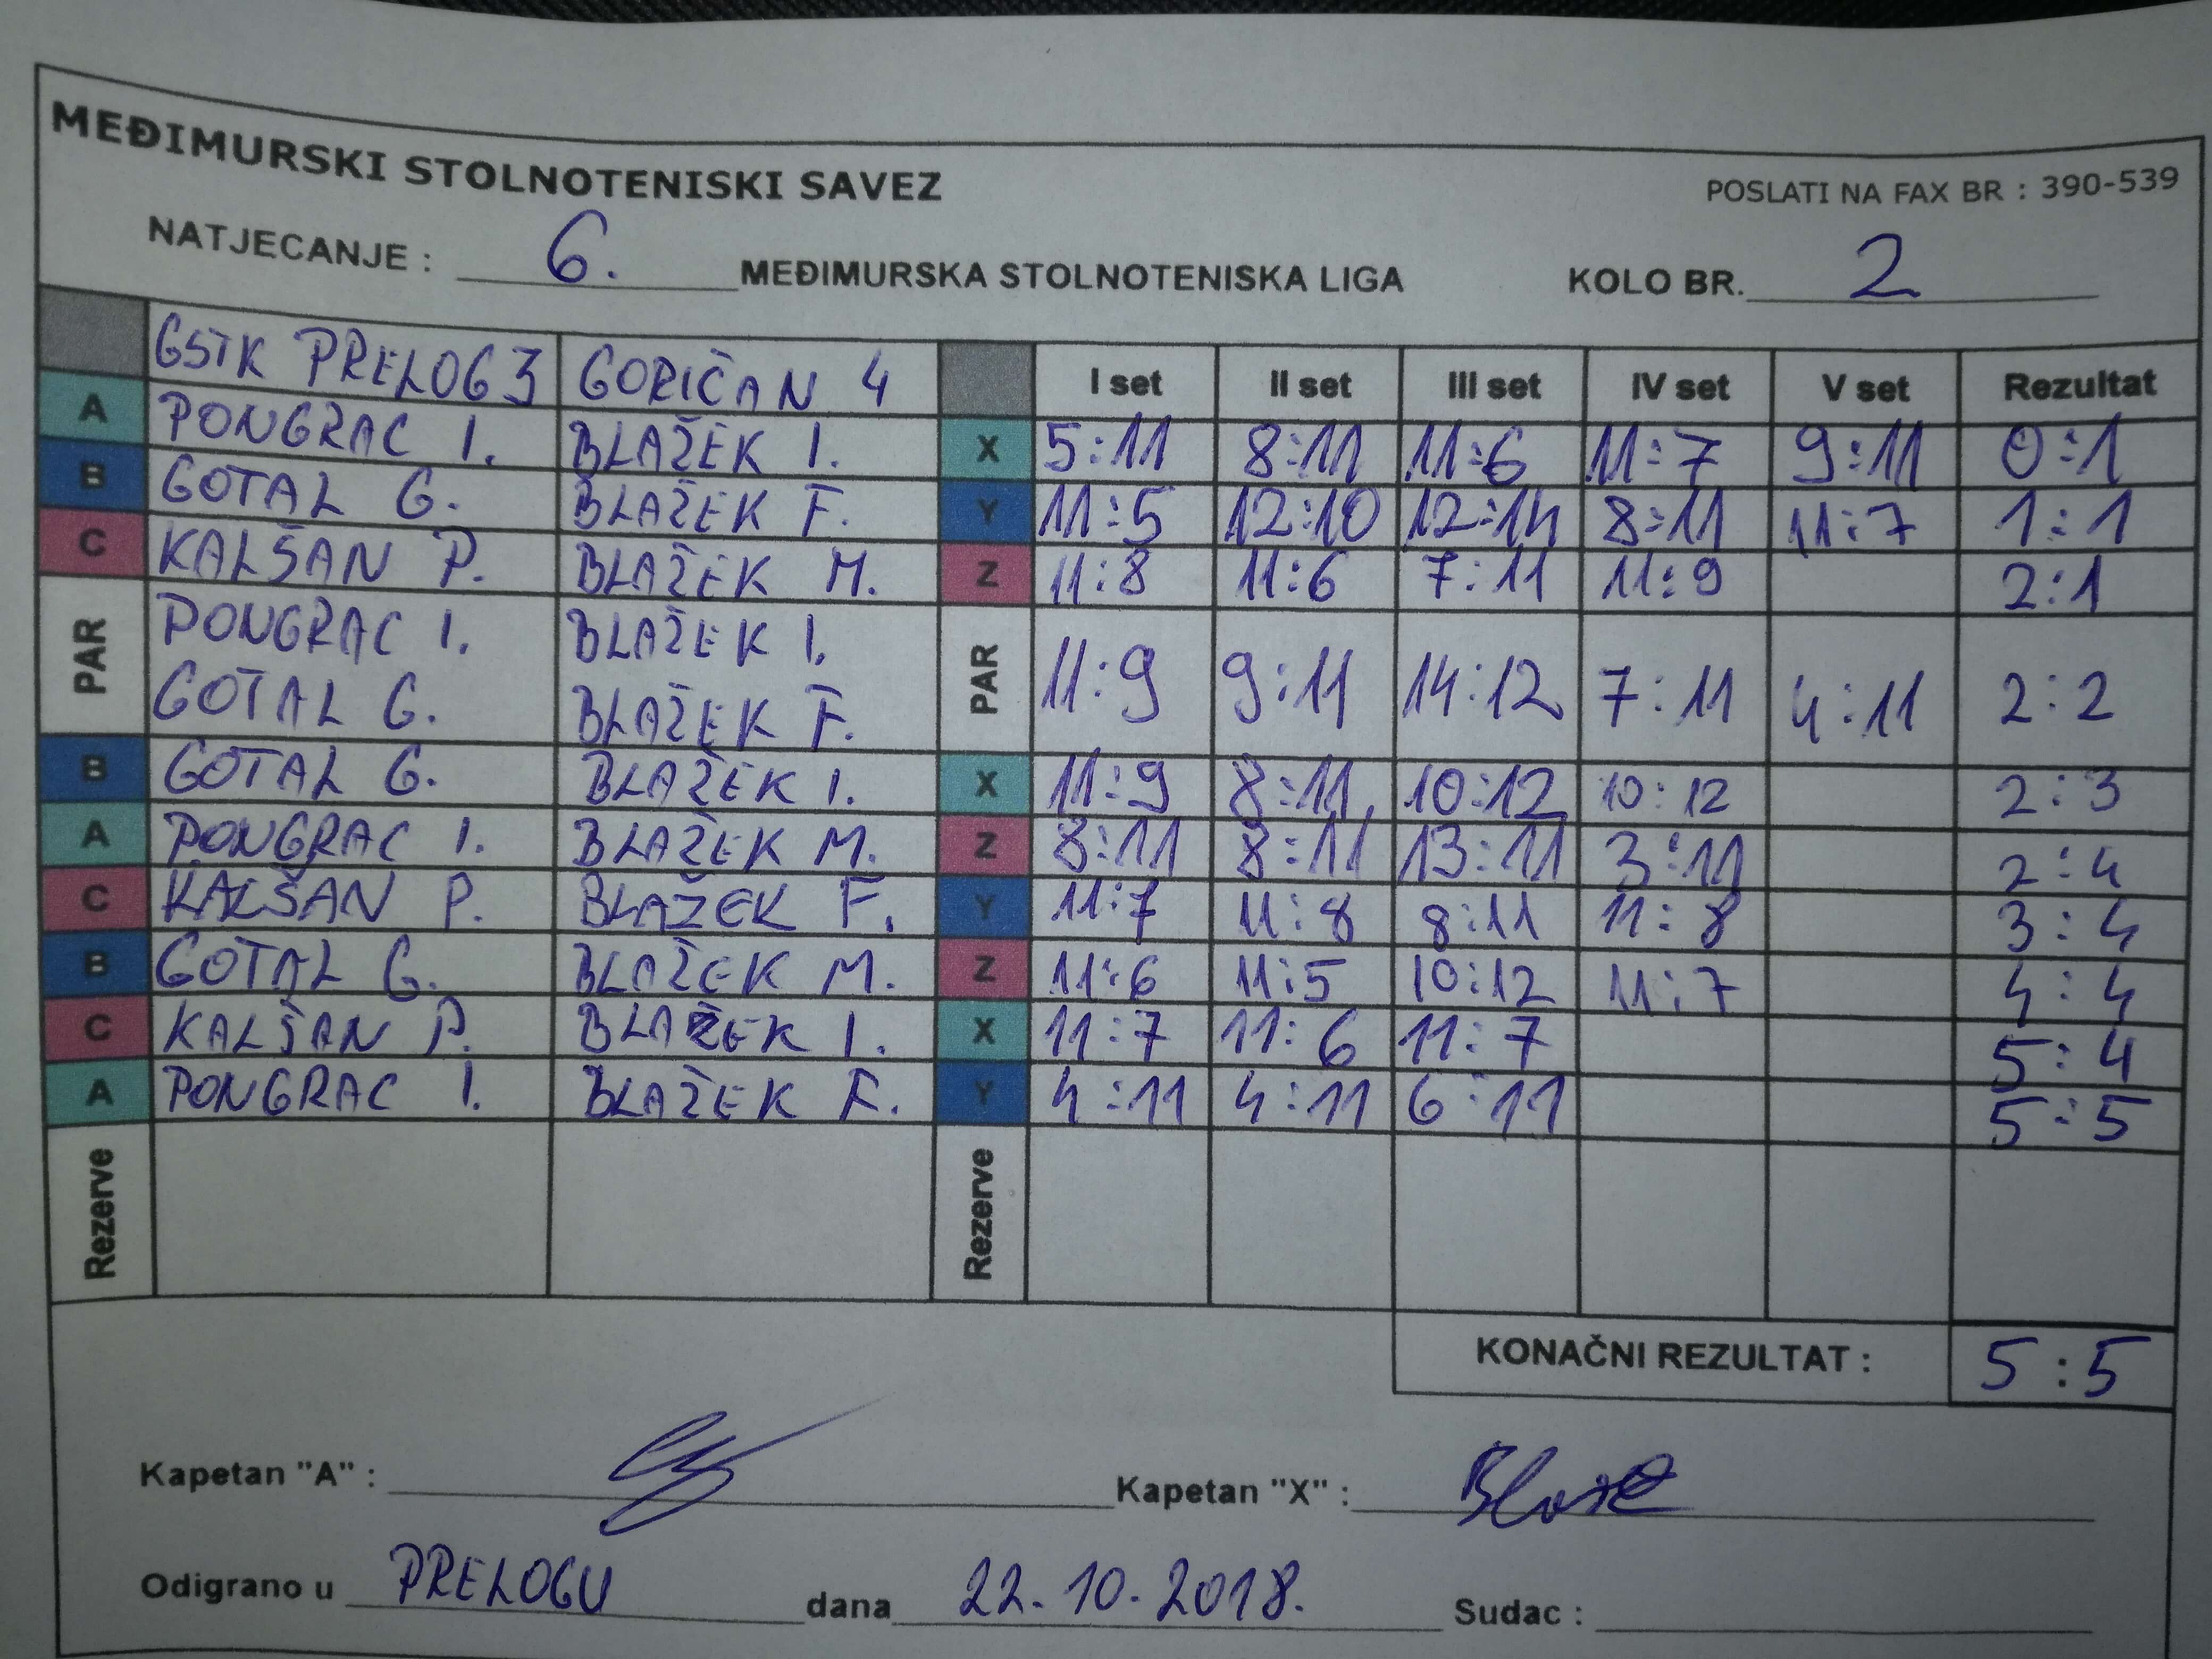 MEĐIMURSKI STOLNOTENISKI SAVEZ POSLATI NA FAX BR : 390-539
NATJECANJE : 6. MEĐIMURSKA STOLNOTENISKA LIGA KOLO BR. 2
GSTK PRELOG 3 GORIČAN 4 I set II set III set IV set V set Rezultat
A PONGRAC I. BLAŽEK I. X 5:11 8:11 11:6 11:7 9:11 0:1
B GOTAL G. BLAŽEK F. Y 11:5 12:10 12:14 8:11 11:7 1:1
C KALŠAN P. BLAŽEK M. Z 11:8 11:6 7:11 11:9 2:1
PAR PONGRAC I. BLAŽEK I. PAR 11:9 9:11 14:12 7:11 4:11 2:2
GOTAL G. BLAŽEK F.
B GOTAL G. BLAŽEK I. X 11:9 8:11 10:12 10:12 2:3
A PONGRAC I. BLAŽEK M. Z 8:11 8:11 13:11 3:11 2:4
C KALŠAN P. BLAŽEK F. Y 11:7 11:8 8:11 11:8 3:4
B GOTAL G. BLAŽEK M. Z 11:6 11:5 10:12 11:7 4:4
C KALŠAN P. BLAŽEK I. X 11:7 11:6 11:7 5:4
A PONGRAC I. BLAŽEK F. Y 4:11 4:11 6:11 5:5
Rezerve Rezerve
KONAČNI REZULTAT : 5:5
Kapetan "A" : Kapetan "X" :
Odigrano u PRELOGU dana 22.10.2018. Sudac :